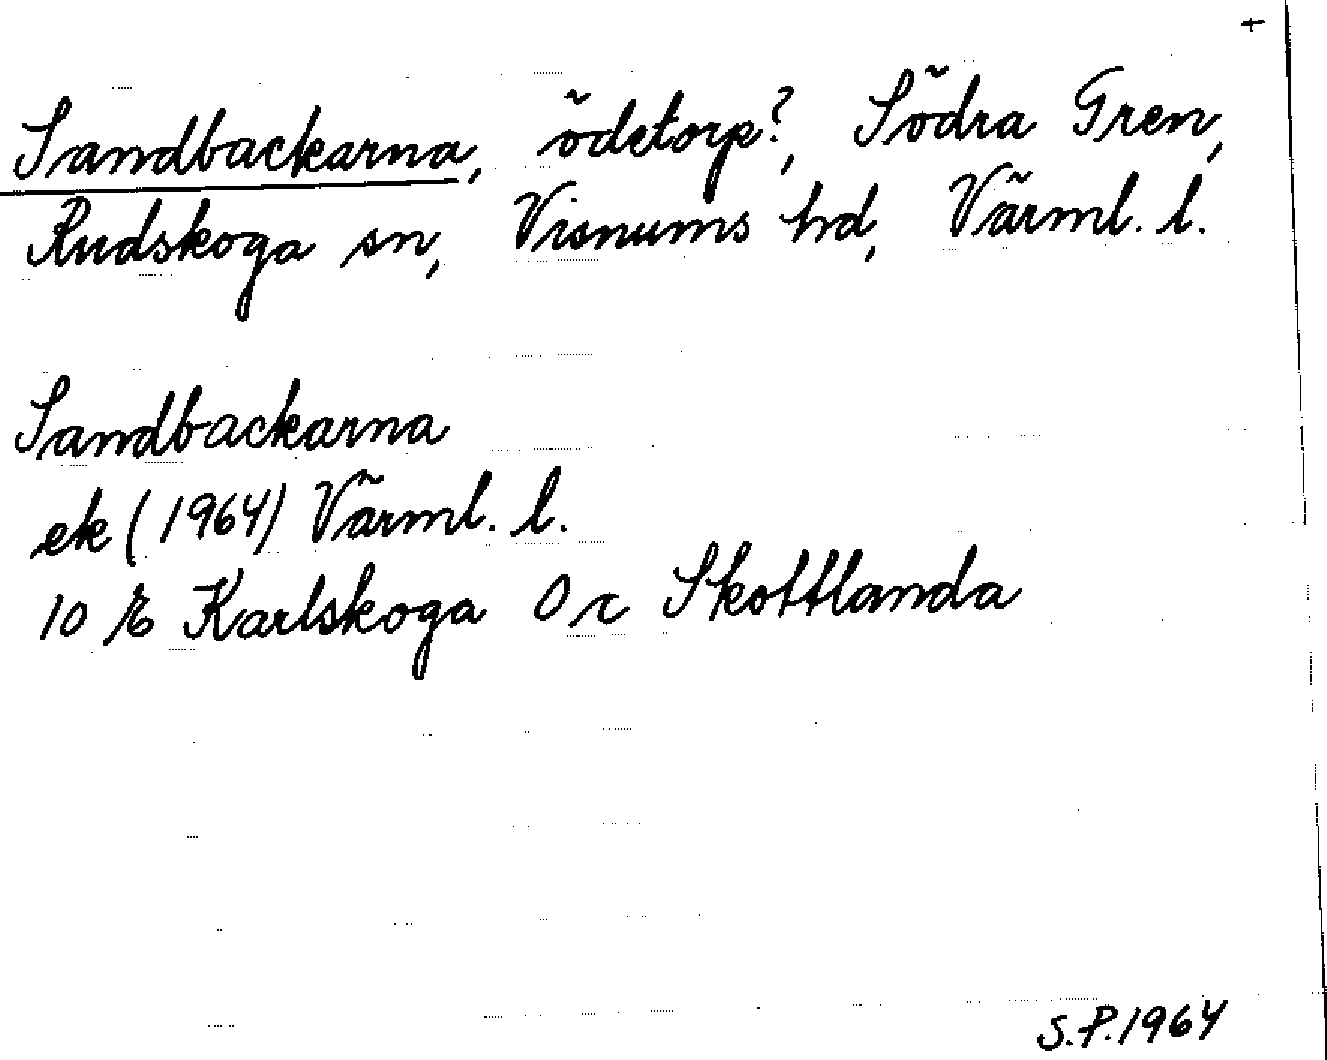 Sandbackarna, ödetorp?, Södra Gren,
Rudskoga sn, Visnums hd, Värml. l.
Sandbackarna
ek (1964) Värml. l.
10 E Karlskoga O r Skottlanda
S.P. 1964